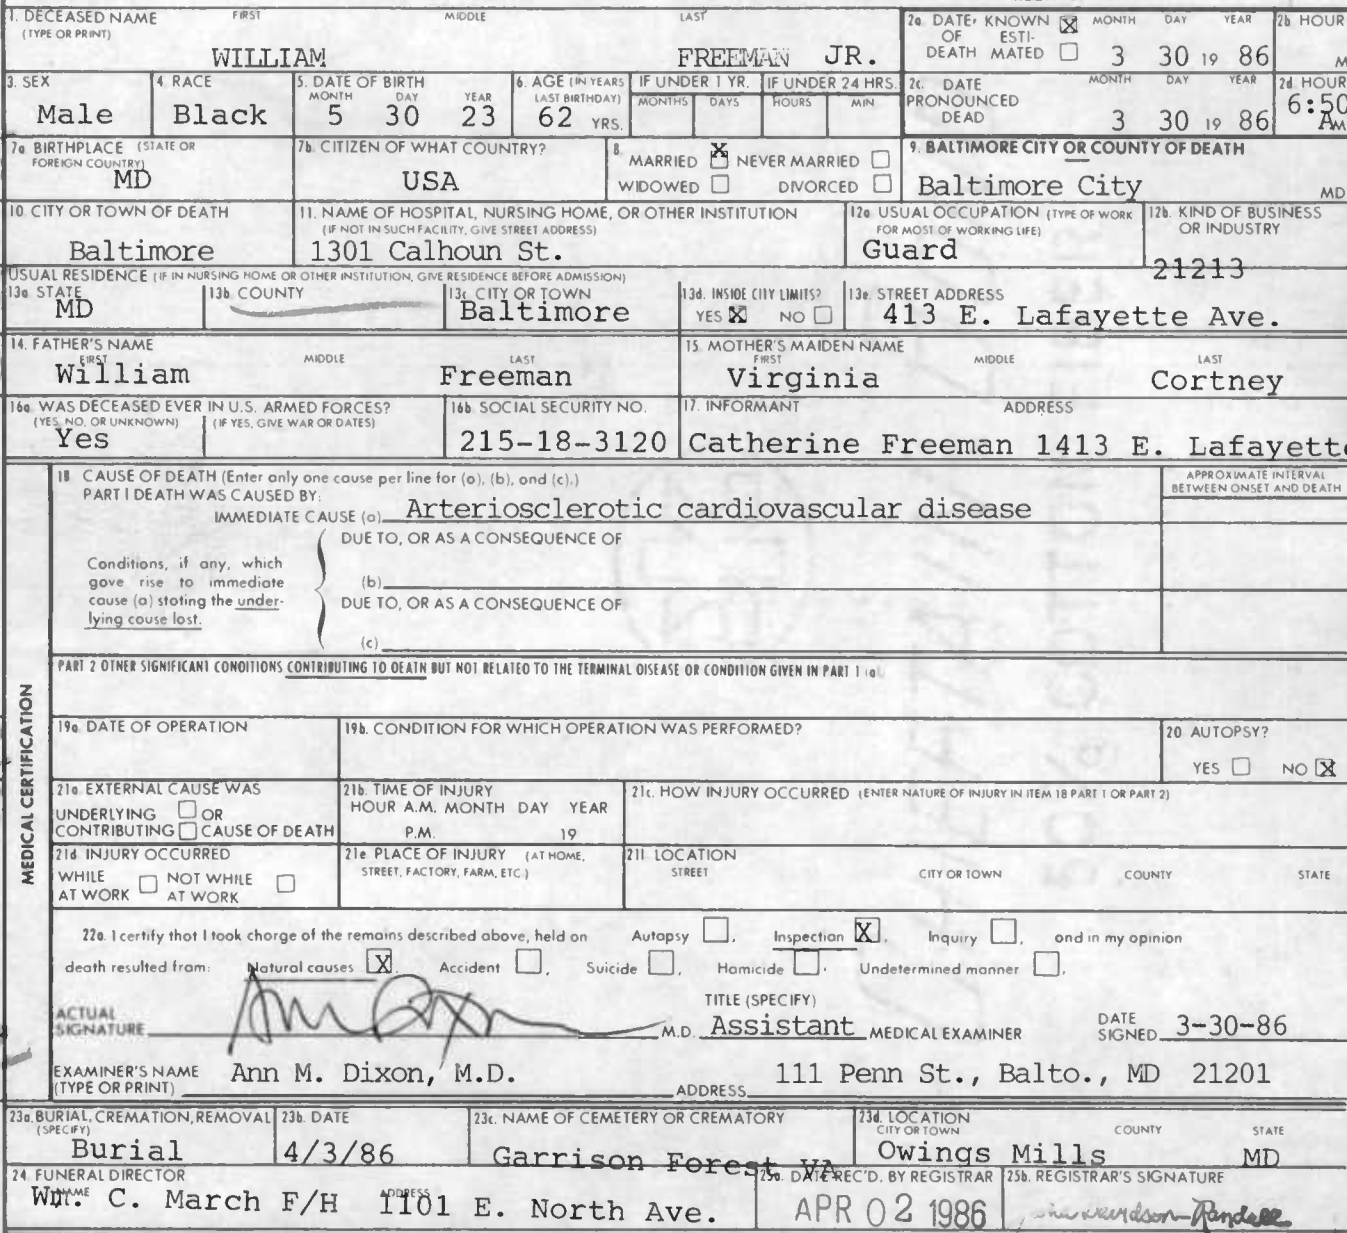 1. DECEASED NAME FIRST MIDDLE LAST
(TYPE OR PRINT)
WILLIAM FREEMAN JR.
2a. DATE KNOWN X MONTH DAY YEAR
OF ESTI-
DEATH MATED 3 30 19 86
2b HOUR
M
3. SEX
Male
4. RACE
Black
5. DATE OF BIRTH
MONTH DAY YEAR
5 30 23
6. AGE (IN YEARS
LAST BIRTHDAY)
62 YRS.
IF UNDER 1 YR.
MONTHS DAYS
IF UNDER 24 HRS.
HOURS MIN
2c. DATE MONTH DAY YEAR
PRONOUNCED
DEAD 3 30 19 86
2d HOUR
6:50
AM
7a BIRTHPLACE (STATE OR
FOREIGN COUNTRY)
MD
7b. CITIZEN OF WHAT COUNTRY?
USA
8.
MARRIED X NEVER MARRIED
WIDOWED DIVORCED
9. BALTIMORE CITY OR COUNTY OF DEATH
Baltimore City MD
10 CITY OR TOWN OF DEATH
Baltimore
11. NAME OF HOSPITAL, NURSING HOME, OR OTHER INSTITUTION
(IF NOT IN SUCH FACILITY, GIVE STREET ADDRESS)
1301 Calhoun St.
12a USUAL OCCUPATION (TYPE OF WORK
FOR MOST OF WORKING LIFE)
Guard
12b. KIND OF BUSINESS
OR INDUSTRY
21213
USUAL RESIDENCE (IF IN NURSING HOME OR OTHER INSTITUTION, GIVE RESIDENCE BEFORE ADMISSION)
13a STATE
MD
13b. COUNTY
13c CITY OR TOWN
Baltimore
13d. INSIDE CITY LIMITS?
YES X NO
13e. STREET ADDRESS
413 E. Lafayette Ave.
14. FATHER'S NAME
FIRST MIDDLE LAST
William Freeman
15. MOTHER'S MAIDEN NAME
FIRST MIDDLE LAST
Virginia Cortney
16a WAS DECEASED EVER IN U.S. ARMED FORCES?
(YES, NO, OR UNKNOWN) (IF YES, GIVE WAR OR DATES)
Yes
16b. SOCIAL SECURITY NO.
215-18-3120
17. INFORMANT ADDRESS
Catherine Freeman 1413 E. Lafayette
MEDICAL CERTIFICATION
18 CAUSE OF DEATH (Enter only one cause per line for (a), (b), and (c).)
PART I DEATH WAS CAUSED BY:
IMMEDIATE CAUSE (a) Arteriosclerotic cardiovascular disease
APPROXIMATE INTERVAL
BETWEEN ONSET AND DEATH
DUE TO, OR AS A CONSEQUENCE OF
Conditions, if any, which
gave rise to immediate
cause (a) stating the under-
lying cause last.
(b)
DUE TO, OR AS A CONSEQUENCE OF
(c)
PART 2 OTHER SIGNIFICANT CONDITIONS CONTRIBUTING TO DEATH BUT NOT RELATED TO THE TERMINAL DISEASE OR CONDITION GIVEN IN PART 1 (a)
19a DATE OF OPERATION
19b. CONDITION FOR WHICH OPERATION WAS PERFORMED?
20 AUTOPSY?
YES NO X
21a EXTERNAL CAUSE WAS
UNDERLYING OR
CONTRIBUTING CAUSE OF DEATH
21b. TIME OF INJURY
HOUR A.M. MONTH DAY YEAR
P.M. 19
21c. HOW INJURY OCCURRED (ENTER NATURE OF INJURY IN ITEM 18 PART 1 OR PART 2)
21d INJURY OCCURRED
WHILE NOT WHILE
AT WORK AT WORK
21e PLACE OF INJURY (AT HOME,
STREET, FACTORY, FARM, ETC.)
21f LOCATION
STREET CITY OR TOWN COUNTY STATE
22a. I certify that I took charge of the remains described above, held on Autopsy , Inspection X, Inquiry , and in my opinion
death resulted from: Natural causes X, Accident , Suicide , Homicide , Undetermined manner .
TITLE (SPECIFY)
ACTUAL
SIGNATURE M.D. Assistant MEDICAL EXAMINER
DATE
SIGNED 3-30-86
EXAMINER'S NAME
(TYPE OR PRINT) Ann M. Dixon, M.D.
ADDRESS 111 Penn St., Balto., MD 21201
23a. BURIAL, CREMATION, REMOVAL
(SPECIFY)
Burial
23b. DATE
4/3/86
23c. NAME OF CEMETERY OR CREMATORY
Garrison Forest VA
23d. LOCATION
CITY OR TOWN COUNTY STATE
Owings Mills MD
24 FUNERAL DIRECTOR
NAME ADDRESS
Wm. C. March F/H 1101 E. North Ave.
25a. DATE REC'D. BY REGISTRAR
APR 02 1986
25b. REGISTRAR'S SIGNATURE
Davidson-Randall